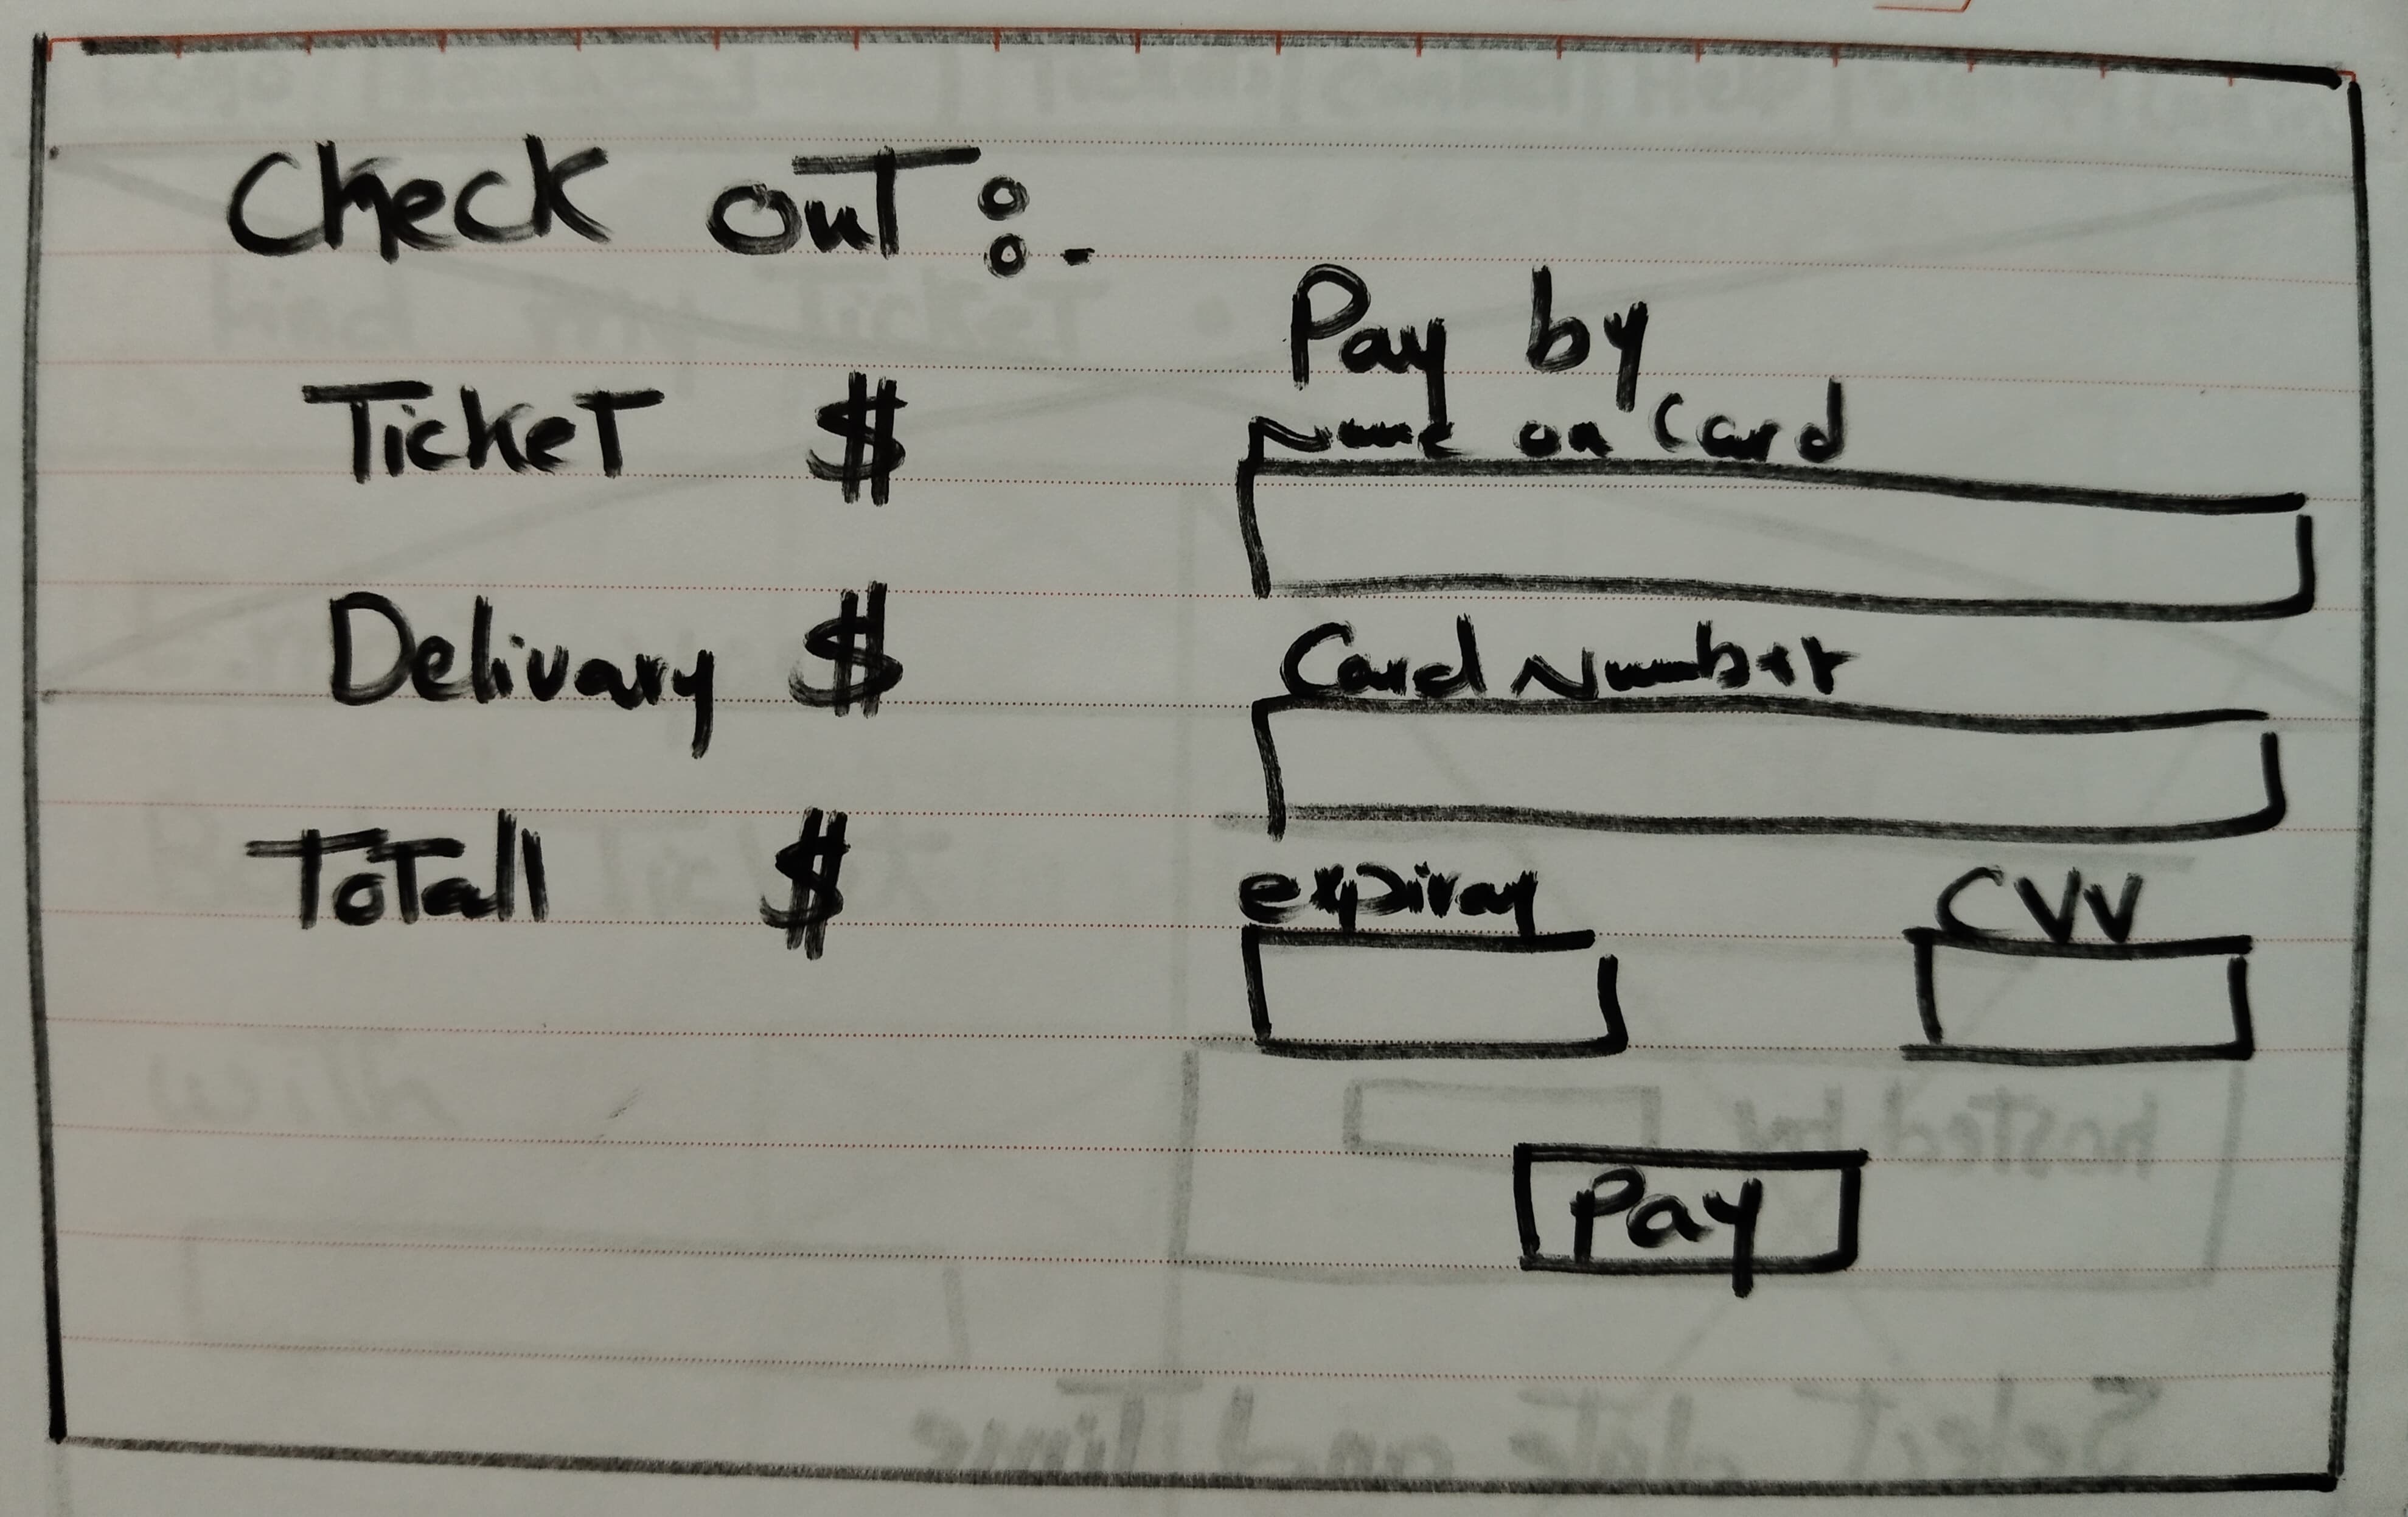 Check out :-
Ticket $
Delivary $
Totall $
Pay by
Name on Card
Card Number
expiray
CVV
Pay